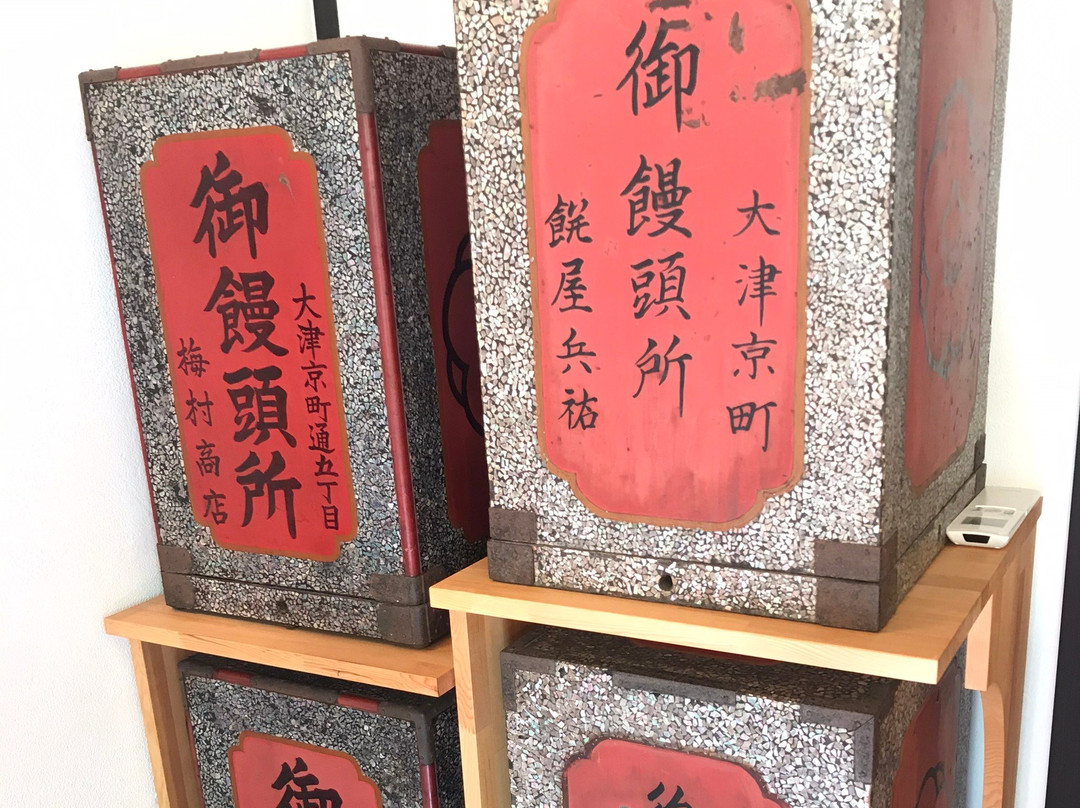 大津京町通五丁目
御饅頭所
梅村商店
大津京町
御饅頭所
餅屋兵祐
御
御